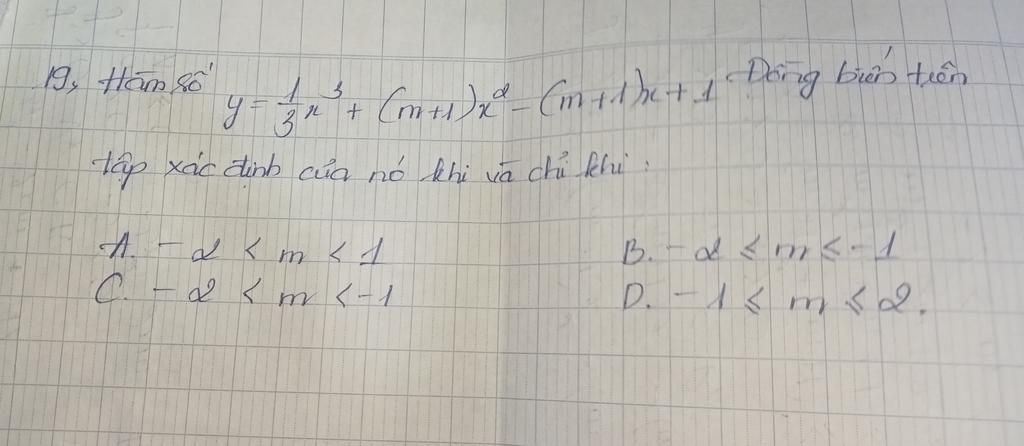 19, Hàm số y = \frac{1}{3}x^3 + (m+1)x^2 - (m+1)x + 1 Đồng biến trên
tập xác định của nó khi và chỉ khi:
A. -2 < m < 1 B. -2 ≤ m ≤ -1
C. -2 < m < -1 D. -1 ≤ m ≤ 2.